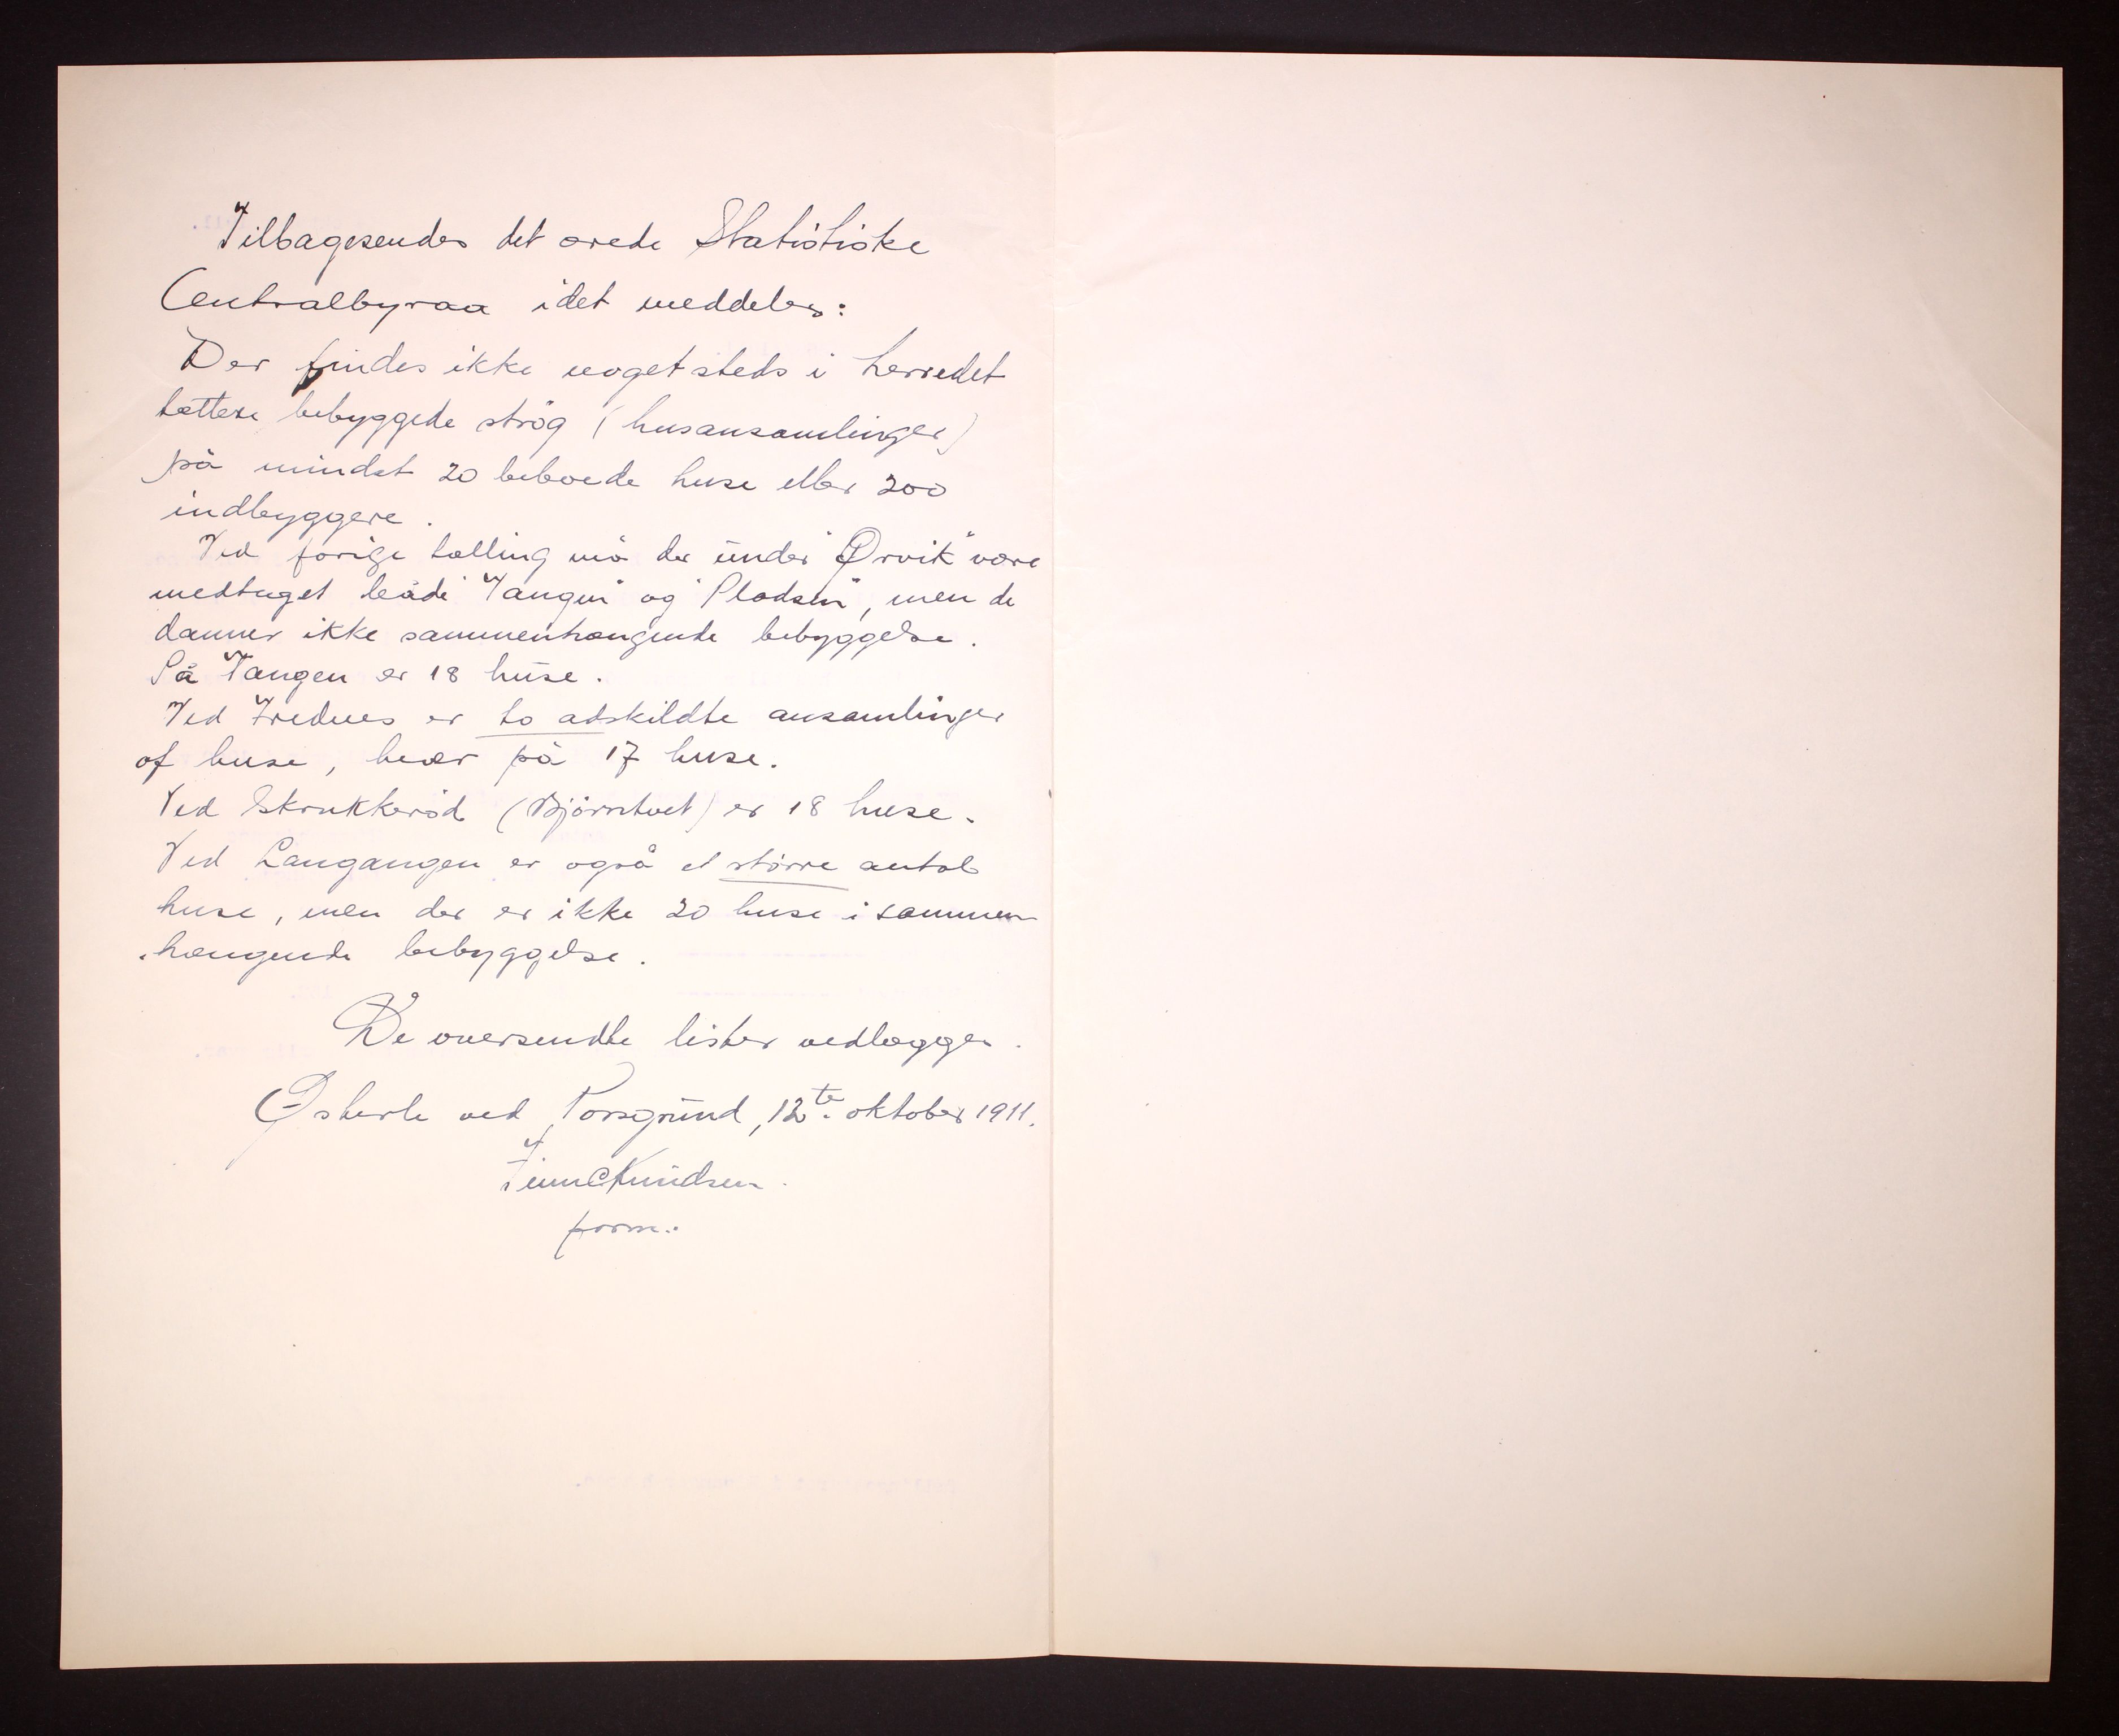 Tilbagesendes det ærede Statistiske
Centralbyraa idet meddeles:
Der findes ikke nogetsteds i herredet
tættere bebyggede strøg (husansamlinger)
på mindst 20 beboede huse eller 200
indbyggere.
Ved forige tælling må der under "Ørvik" være
medtaget både "Tangen" og "Pladsen", men de
danner ikke sammenhængende bebyggelse.
På Tangen er 18 huse.
Ved Frednes er to adskildte ansamlinger
af huse, hvær på 17 huse.
Ved Skrukkerød (Bjørntvet) er 18 huse.
Ved Langangen er også et større antal
huse, men der er ikke 20 huse i sammen
hængende bebyggelse.
De oversendte lister vedlægges.
Ø ved Porsgrund, 12te oktober 1911.
Finn C Knudsen.
form.